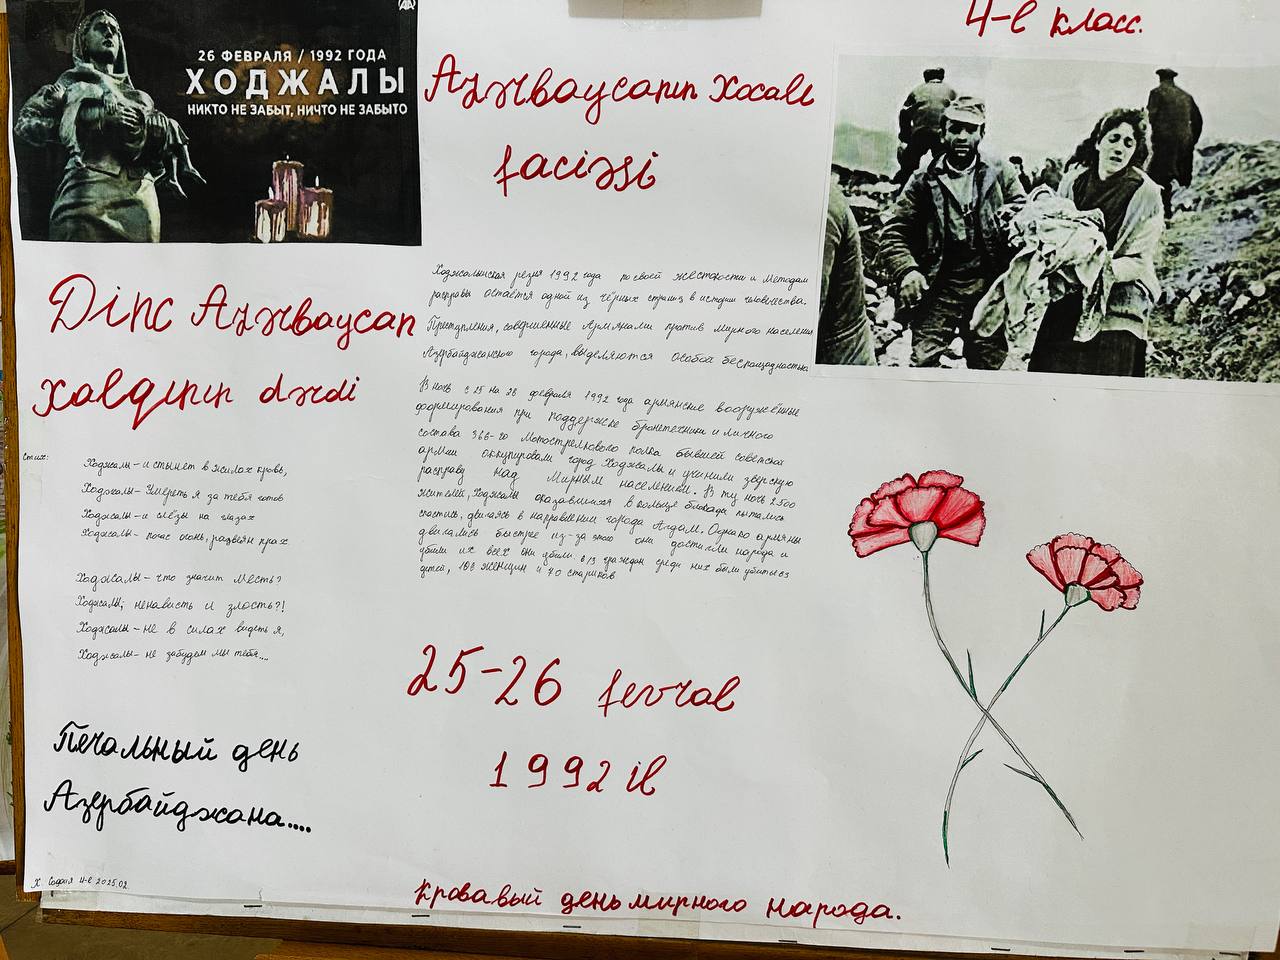 4-е класс.
26 ФЕВРАЛЯ / 1992 ГОДА
ХОДЖАЛЫ
НИКТО НЕ ЗАБЫТ, НИЧТО НЕ ЗАБЫТО
Azərbaycanın Xocalı
faciəsi
Dinc Azərbaycan
xalqının dərdi
Стих:
Ходжалы – и стынет в жилах кровь,
Ходжалы – Умереть я за тебя готов
Ходжалы – и слёзы на глазах
Ходжалы – погас огонь, развеян прах
Ходжалы – что значит месть?
Ходжалы; ненависть и злость?!
Ходжалы – не в силах видеть я,
Ходжалы – не забудем мы тебя....
Печальный день
Азербайджана....
Х. 4-е 2025.02.
Ходжалинская резня 1992 года по своей жестокости и методам
расправы остаётся одной из чёрных страниц в истории человечества.
Преступления, совершенные Армянами против мирного населения
Азербайджанского города, выделяются особой беспощадностью
В ночь с 25 на 26 февраля 1992 года армянские вооружённые
формирования при поддержке бронетехники и личного
состава 366-го Мотострелкового полка бывшей советской
армии оккупировали город Ходжалы и учинили зверскую
расправу над Мирным населением. В ту ночь 2500
жителей, Ходжалы оказавшихся в кольце блокады пытались
спастись, двигаясь в направлении города Агдам. Однако армяны
двигались быстрее из-за этого они достигли народа и
убили их всех они убили 613 граждан среди них были убиты 63
детей, 106 женщин и 70 стариков
25-26 fevral
1992 il
Кровавый день мирного народа.